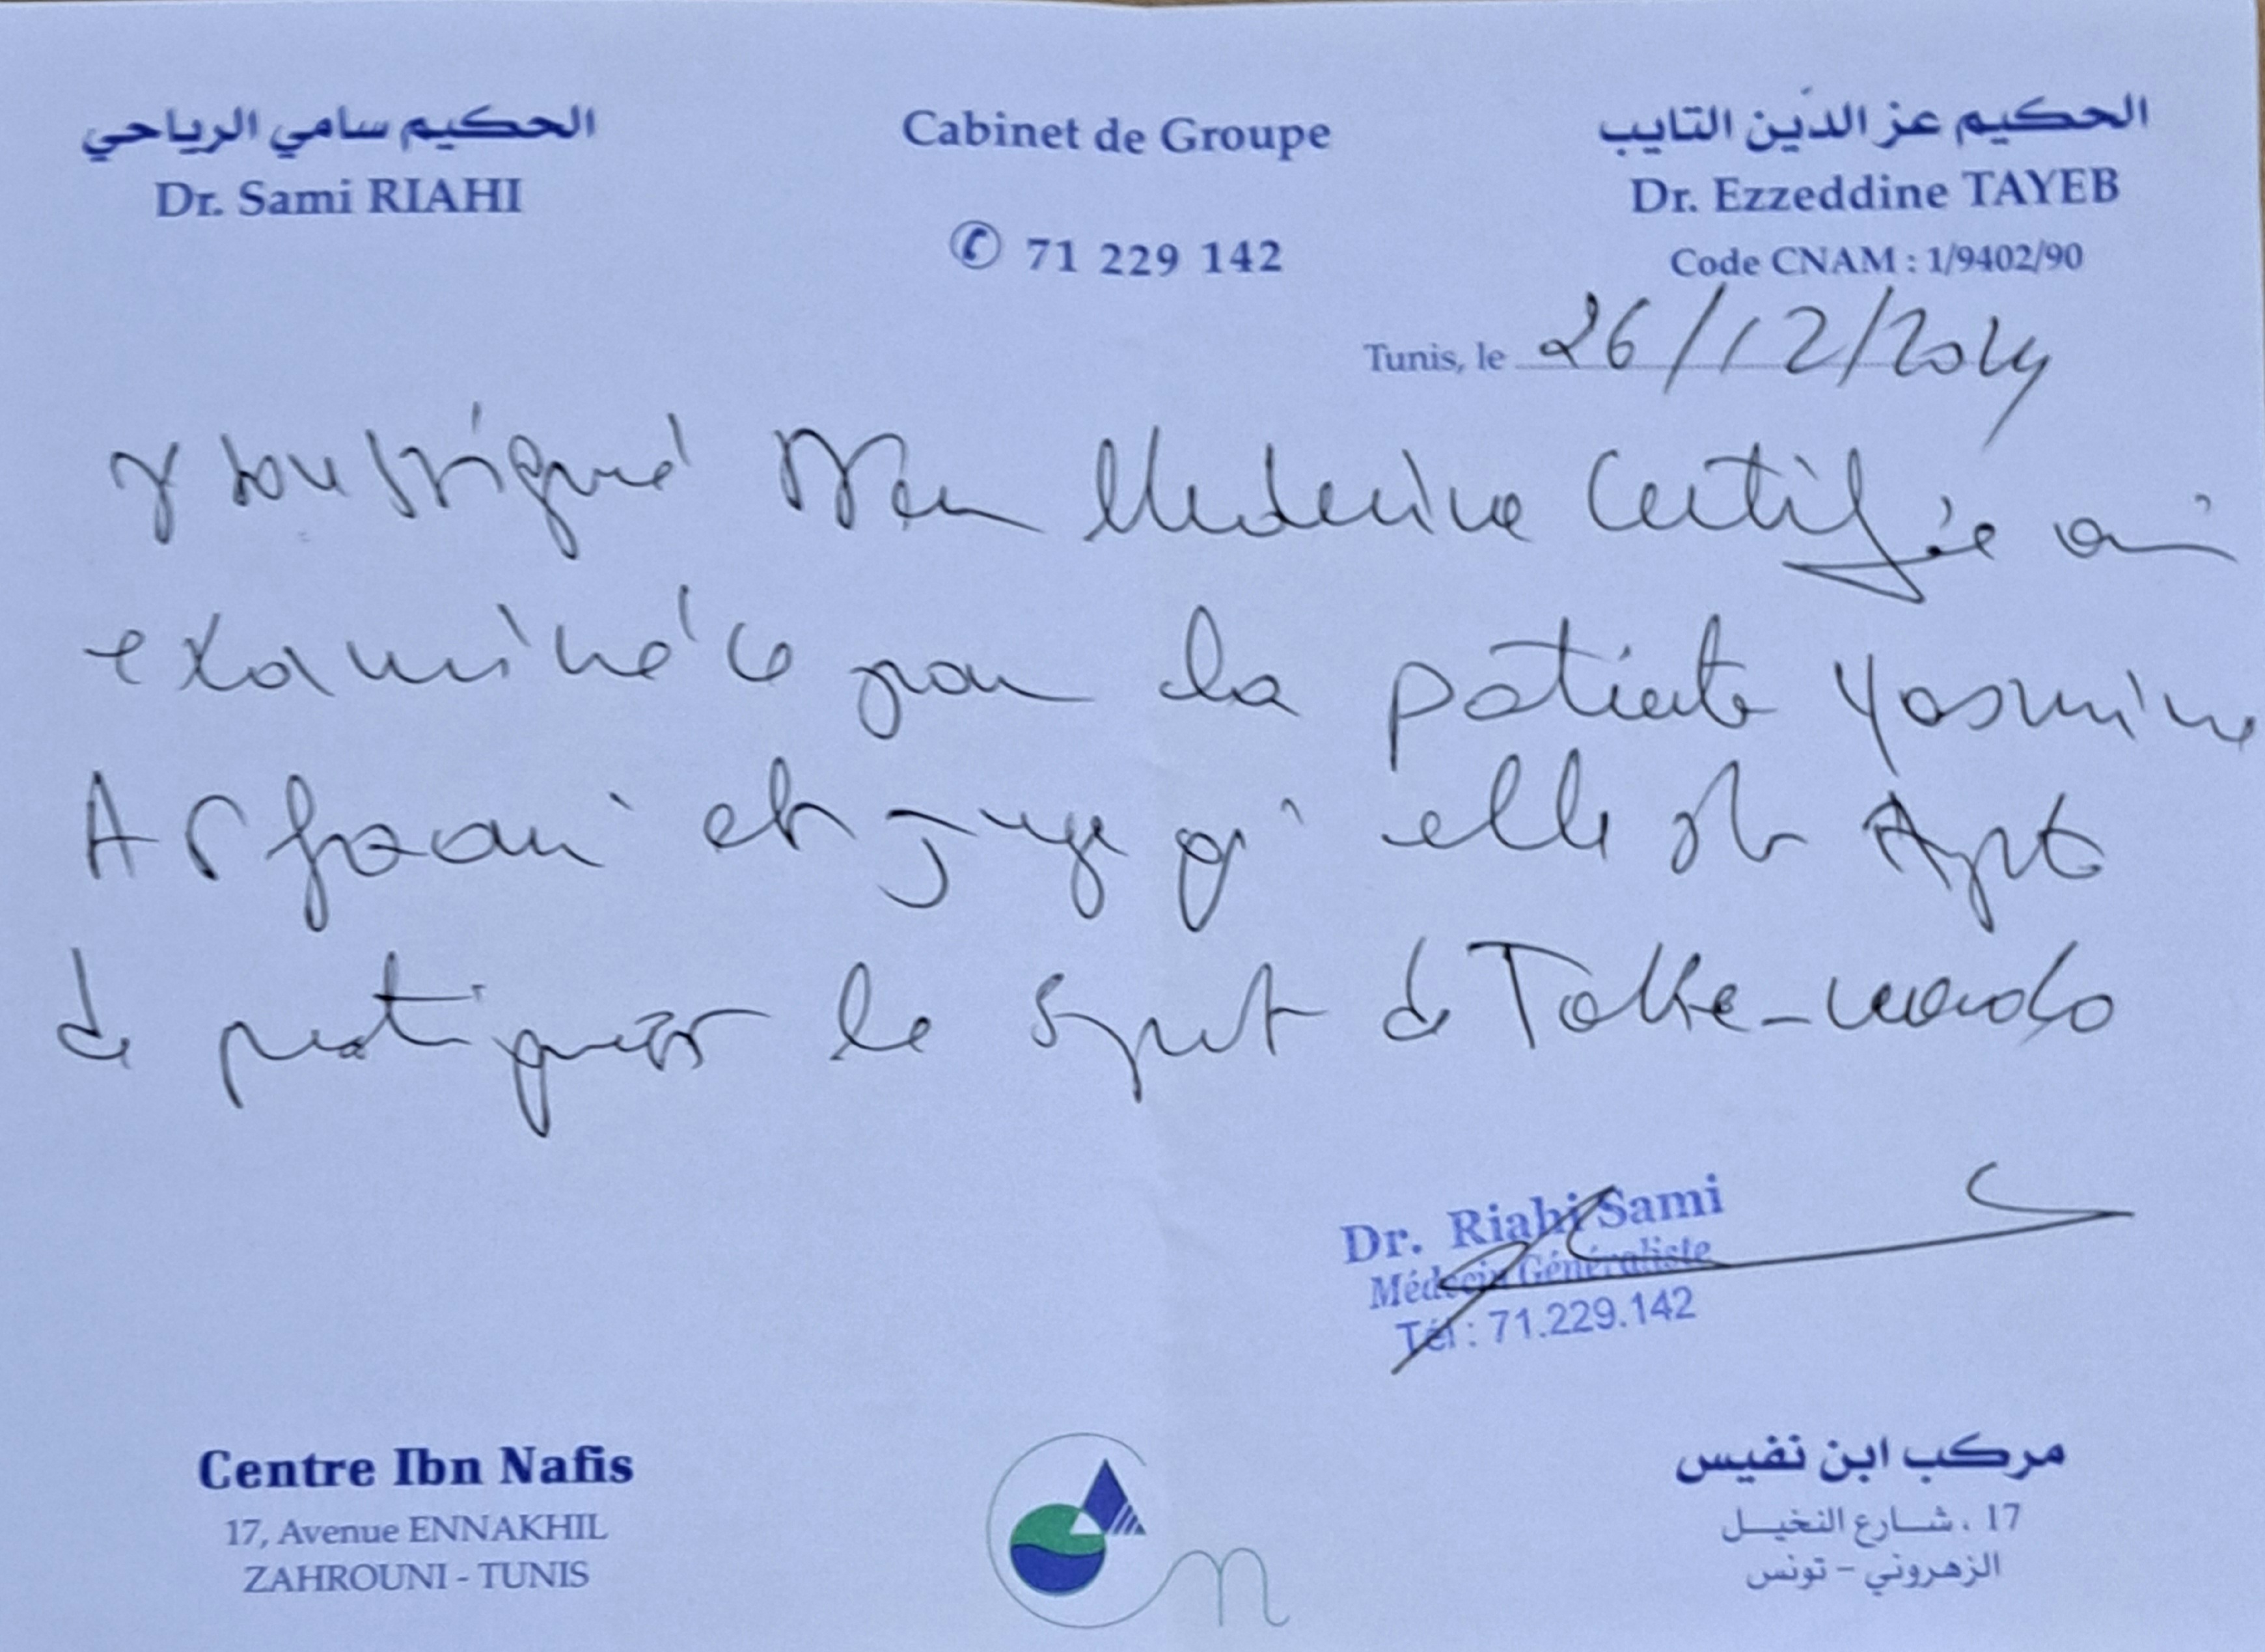 الحكيم سامي الرياحي
Dr. Sami RIAHI
Cabinet de Groupe
✆ 71 229 142
الحكيم عز الدين التايب
Dr. Ezzeddine TAYEB
Code CNAM : 1/9402/90
Tunis, le 26/12/2024
soussigné Medecine Certifie
examiné ce jour la patiente Yasmine
et juge qu'elle est Apte
de pratiquer le sport de
Dr. Riahi Sami
Médecin Généraliste
Tél : 71.229.142
Centre Ibn Nafis
17, Avenue ENNAKHIL
ZAHROUNI - TUNIS
مركب ابن نفيس
17 ، شارع النخيل
الزهروني - تونس